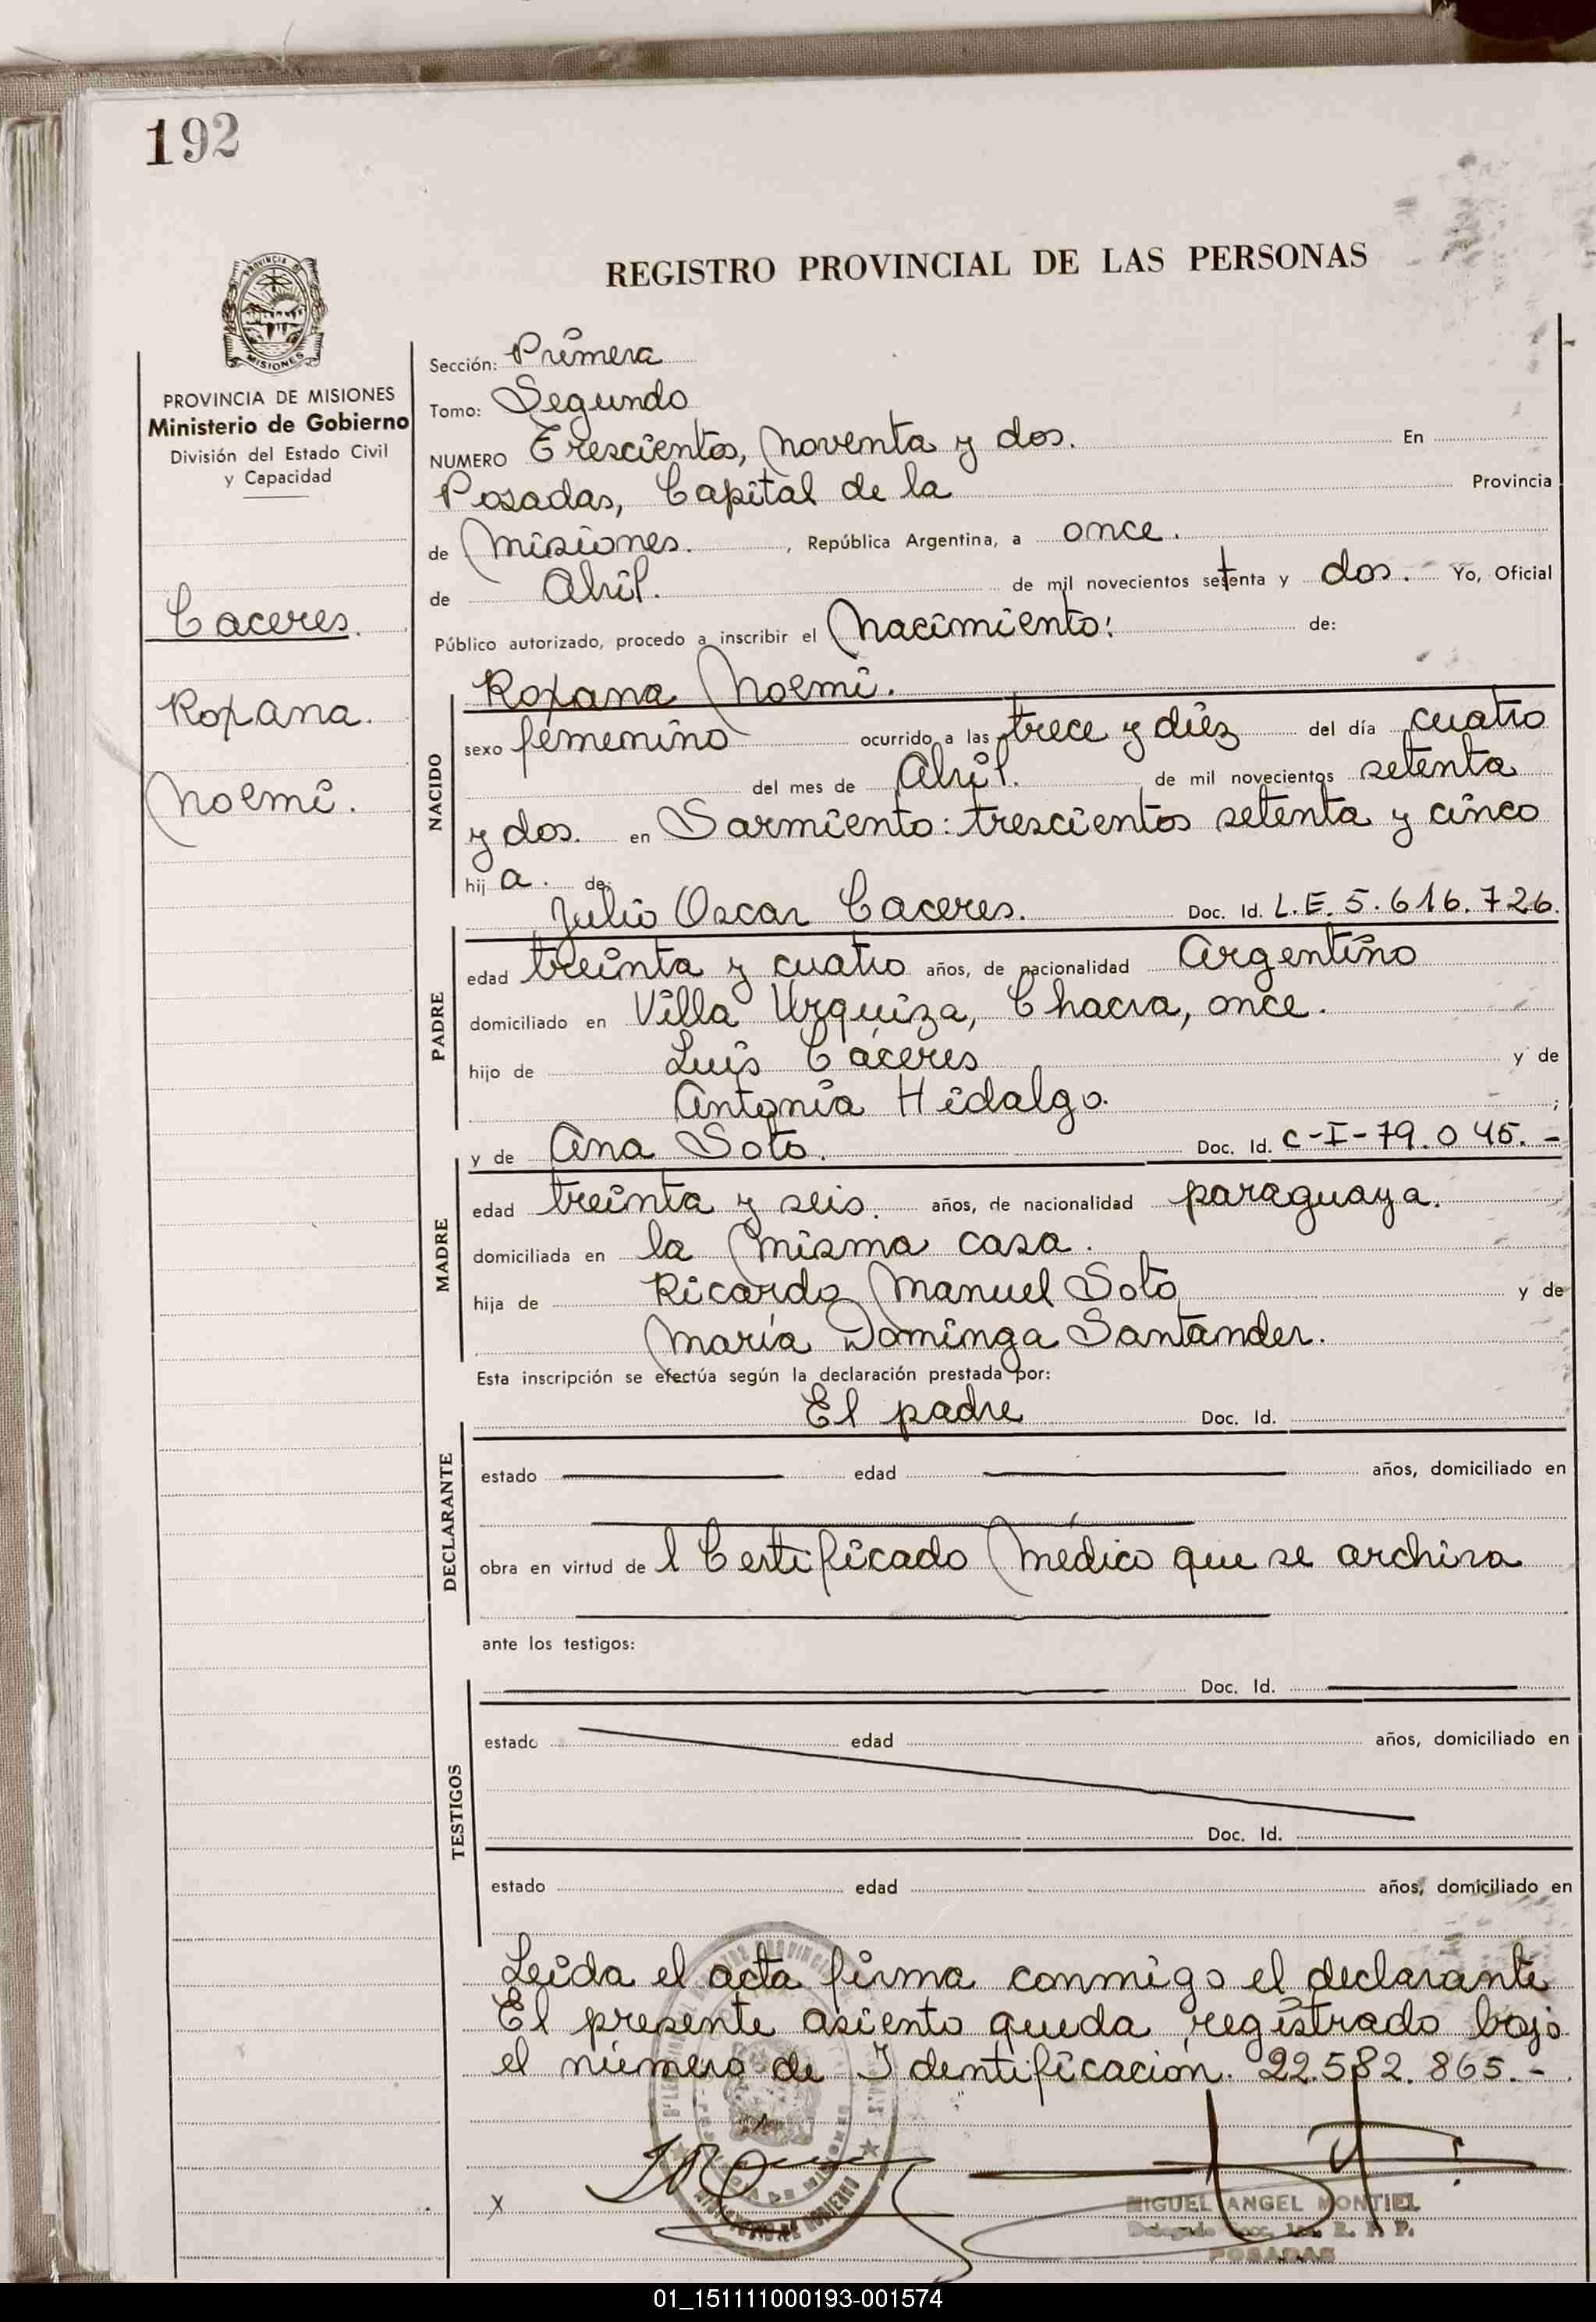 192
REGISTRO PROVINCIAL DE LAS PERSONAS
MISIONES
PROVINCIA DE MISIONES
Ministerio de Gobierno
División del Estado Civil
y Capacidad
Caceres.
Roxana.
Noemi.
Sección: Primera
Tomo: Segundo
NUMERO Trescientos, noventa y dos. En
Posadas, Capital de la Provincia
de Misiones. , República Argentina, a once.
de Abril. de mil novecientos setenta y dos. Yo, Oficial
Público autorizado, procedo a inscribir el Nacimiento: de:
NACIDO
Roxana Noemi.
sexo femenino ocurrido a las trece y diez del día cuatro
del mes de Abril. de mil novecientos setenta
y dos. en Sarmiento: trescientos setenta y cinco
hij a. de:
Julio Oscar Caceres. Doc. Id. L.E. 5.616.726.
PADRE
edad treinta y cuatro años, de nacionalidad Argentino
domiciliado en Villa Urquiza, Chacra, once.
hijo de Luis Cáceres y de
Antonia Hidalgo. ;
y de Ana Soto. Doc. Id. C-I-79.045.-
MADRE
edad treinta y seis. años, de nacionalidad paraguaya.
domiciliada en la misma casa.
hija de Ricardo Manuel Soto y de
María Dominga Santander.
Esta inscripción se efectúa según la declaración prestada por:
El padre Doc. Id.
DECLARANTE
estado edad años, domiciliado en
obra en virtud de l Certificado Médico que se archiva
ante los testigos:
Doc. Id.
TESTIGOS
estado edad años, domiciliado en
Doc. Id.
estado edad años, domiciliado en
Leida el acta firma conmigo el declarante
El presente asiento queda registrado bajo
el número de Identificación. 22.582.865.-
X
MIGUEL ANGEL MONTIEL
Delegado Secc. 1ra. R. P. P.
POSADAS
01_151111000193-001574